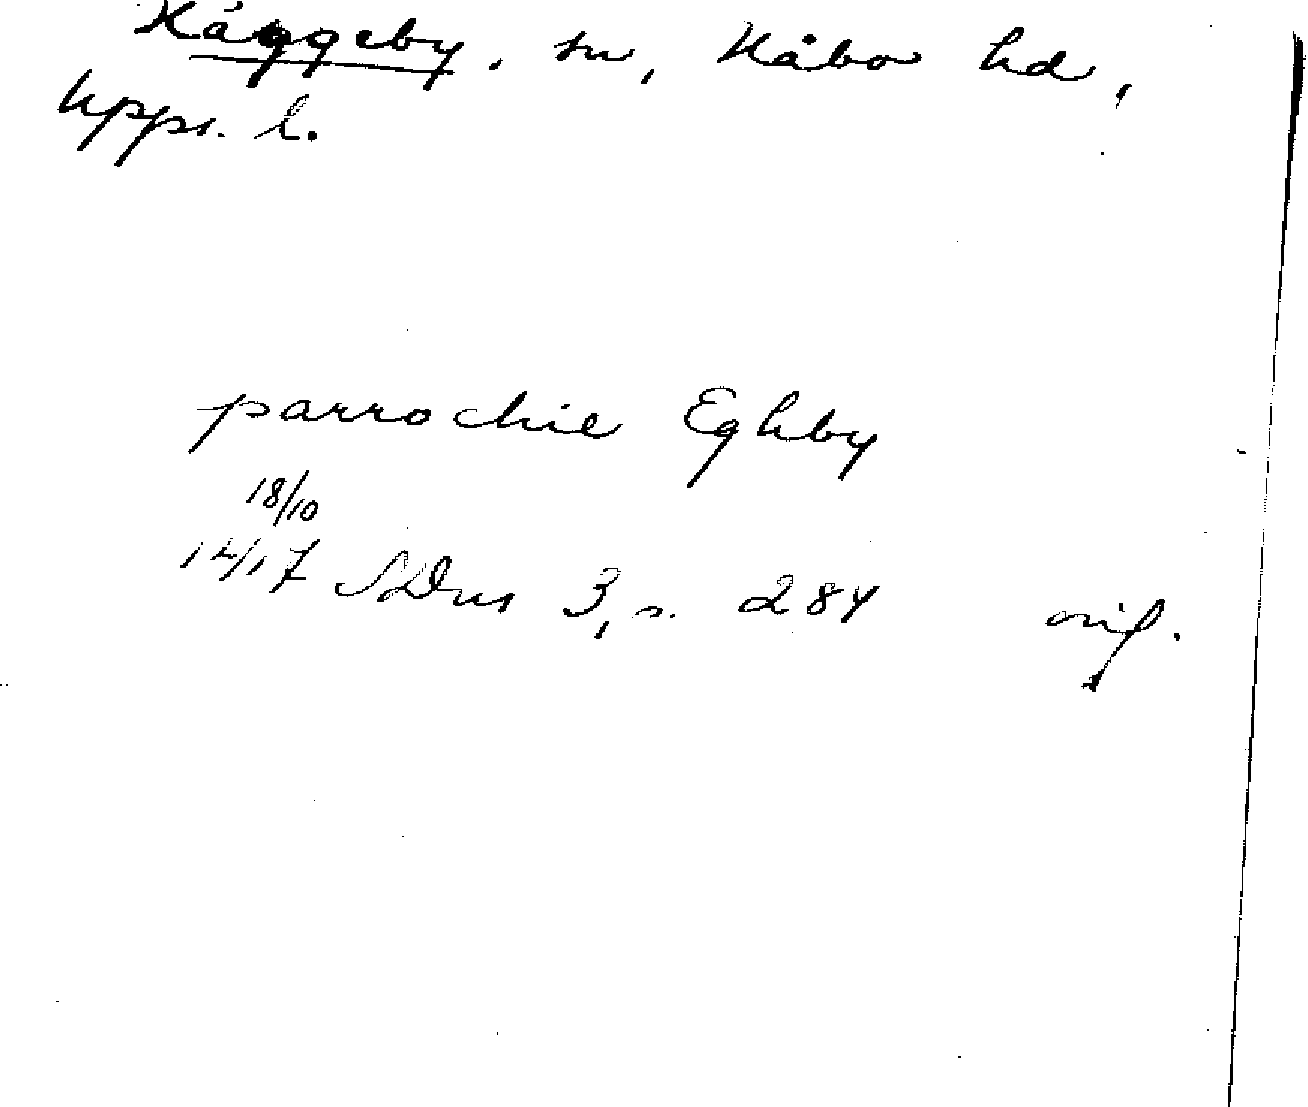 Häggeby, sn, Håbo hd,
Upps. l.
parrochie Eghby
18/10
1417 SDns 3, s. 284 orig.